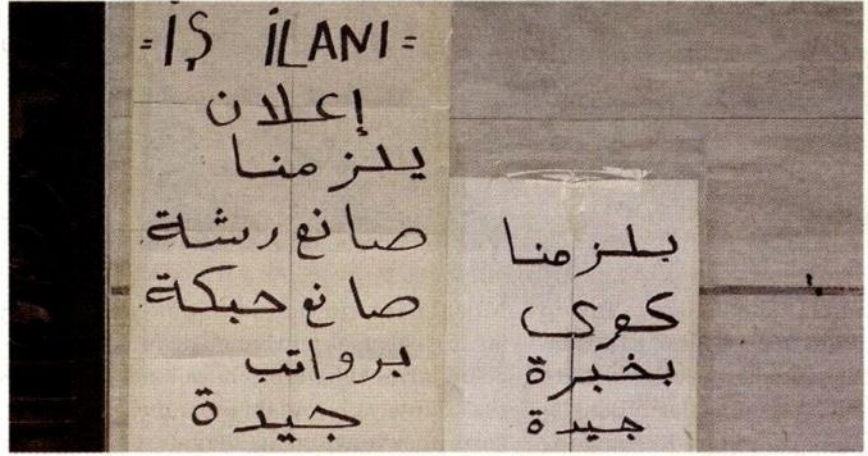 =İŞ İLANI=
إعلان
يلزمنا
صانع رشة
صانع حبكة
برواتب
جيدة
بلزمنا
كوى
بخبرة
جيدة